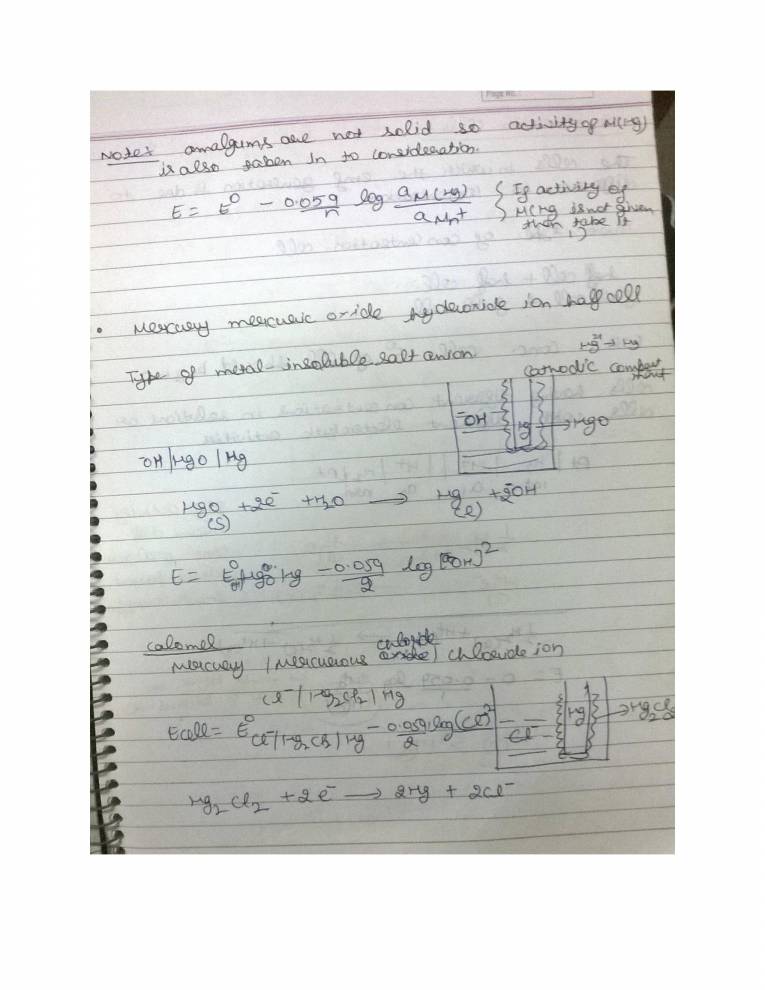 Page No.
Note: amalgums are not solid so activity of M(Hg)
is also taken in to consideration.
E = E⁰ - 0.059/n log a M(Hg) / a Mn+ { If activity of
M(Hg is not given
then take it
1)
• Mercury mercuric oxide hydroxide ion half cell
Type of metal-insoluble salt anion.
Hg²⁺→ Hg
Cathodic
⁻OH
Hg → HgO
⁻OH | HgO | Hg
HgO + 2e⁻ + H₂O → Hg + 2⁻OH
(s) (l)
E = E⁰ OH⁻|HgO|Hg - 0.059/2 log [⁻OH]²
Calomel
chloride
Mercury / Mercurous oxide) chloride ion
Cl⁻ | Hg₂Cl₂ | Hg
Ecell = E⁰ Cl⁻ | Hg₂Cl₂ | Hg - 0.059/2 log (Cl⁻)²
Cl⁻
Hg
→ Hg₂Cl₂
Hg₂Cl₂ + 2e⁻ → 2Hg + 2Cl⁻